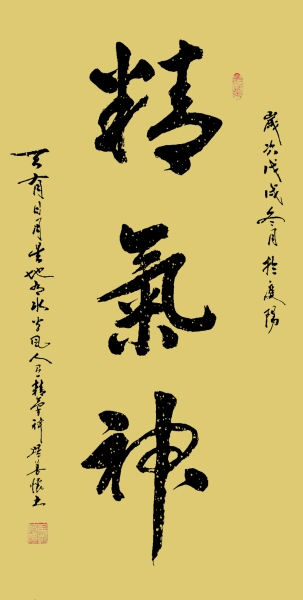 歲次戊戌冬月於
精氣神
天有日月星地有水火風人有精氣神